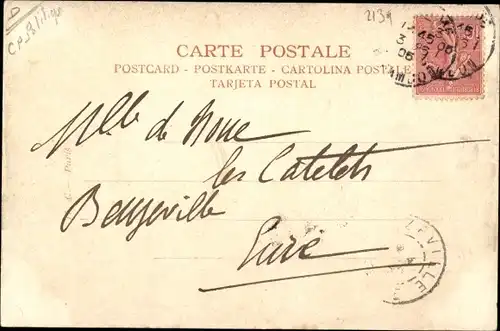 CP Politique
2139
CARTE POSTALE
POSTCARD - POSTKARTE - CARTOLINA POSTALE
TARJETA POSTAL
Mlle de Noue
les Catelets
Beuzeville
Eure